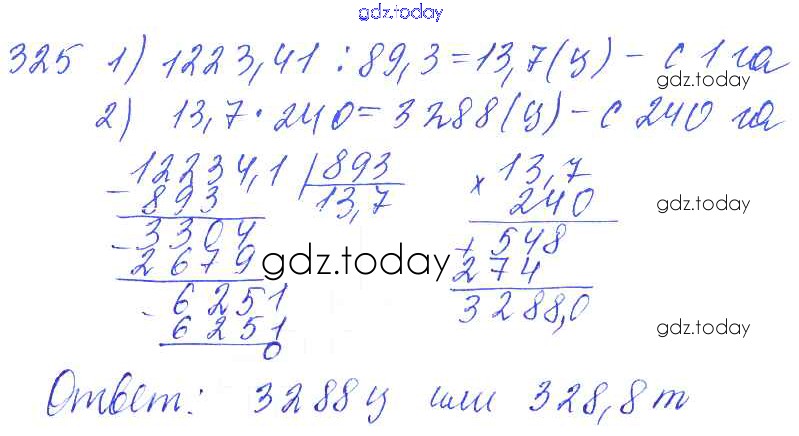 gdz.today
325 1) 1223,41 : 89,3 = 13,7 (ц) – с 1 га
gdz.today
2) 13,7 · 240 = 3288 (ц) – с 240 га
12234,1 | 893
– 893 13,7
3304
– 2679
6251
– 6251
0
13,7
× 240
gdz.today
+ 548
274
3288,0
gdz.today
gdz.today
Ответ: 3288 ц или 328,8 т